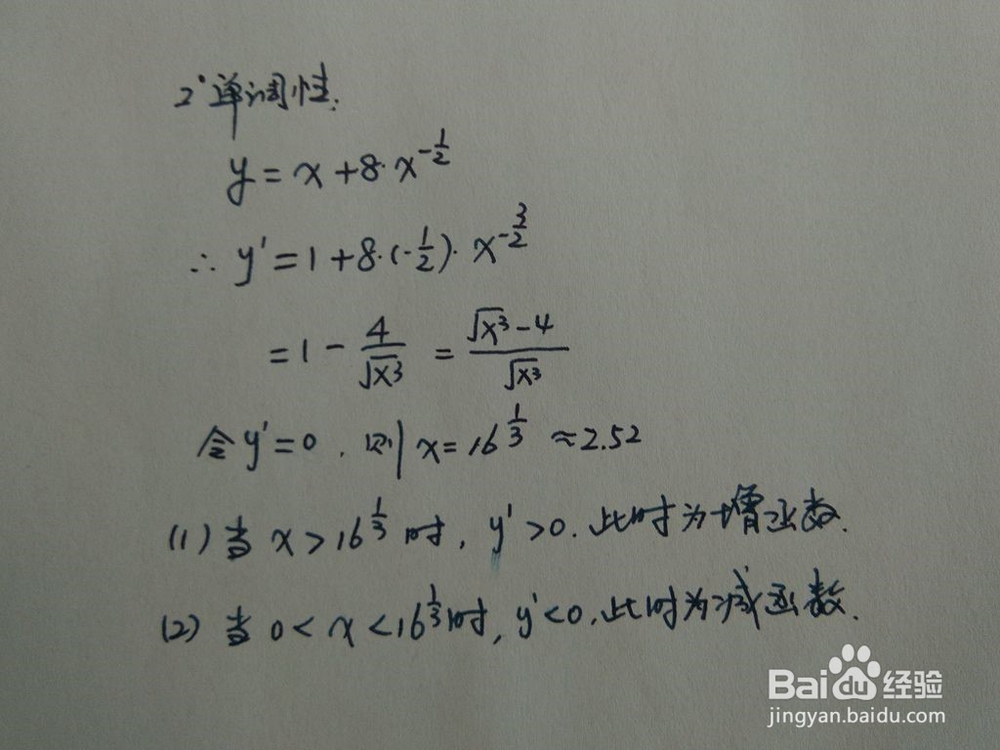 2°单调性:
y = x + 8·x^{-\frac{1}{2}}
∴ y' = 1 + 8·(-\frac{1}{2})·x^{-\frac{3}{2}}
= 1 - \frac{4}{\sqrt{x^3}} = \frac{\sqrt{x^3}-4}{\sqrt{x^3}}
令y'=0,则x=16^{\frac{1}{3}}≈2.52
(1)当x>16^{\frac{1}{3}}时,y'>0.此时为增函数.
(2)当0<x<16^{\frac{1}{3}}时,y'<0,此时为减函数.
Baidu经验
jingyan.baidu.com